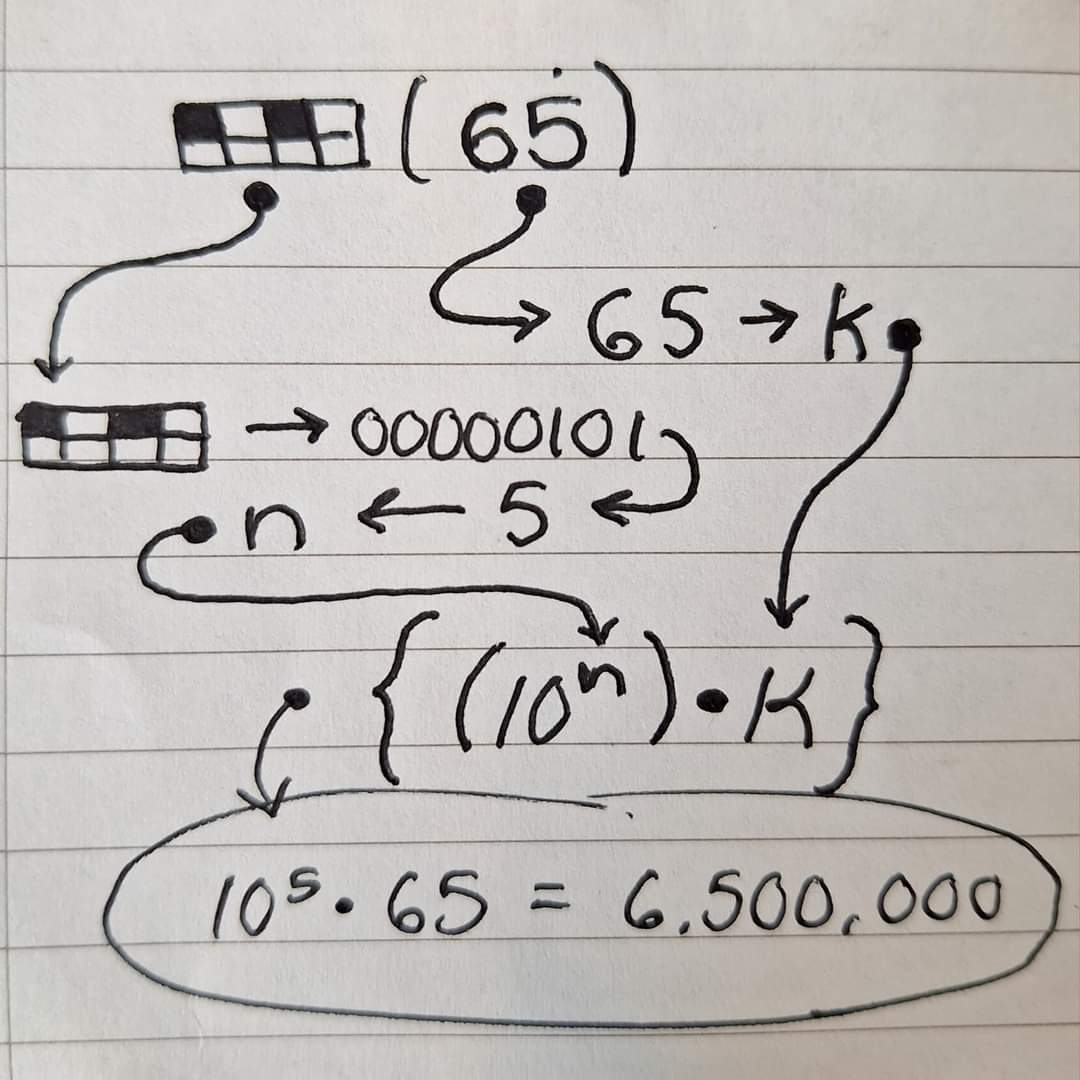 (65)
65 → K
→ 00000101
n ← 5
{(10ⁿ) • K}
10⁵ • 65 = 6,500,000